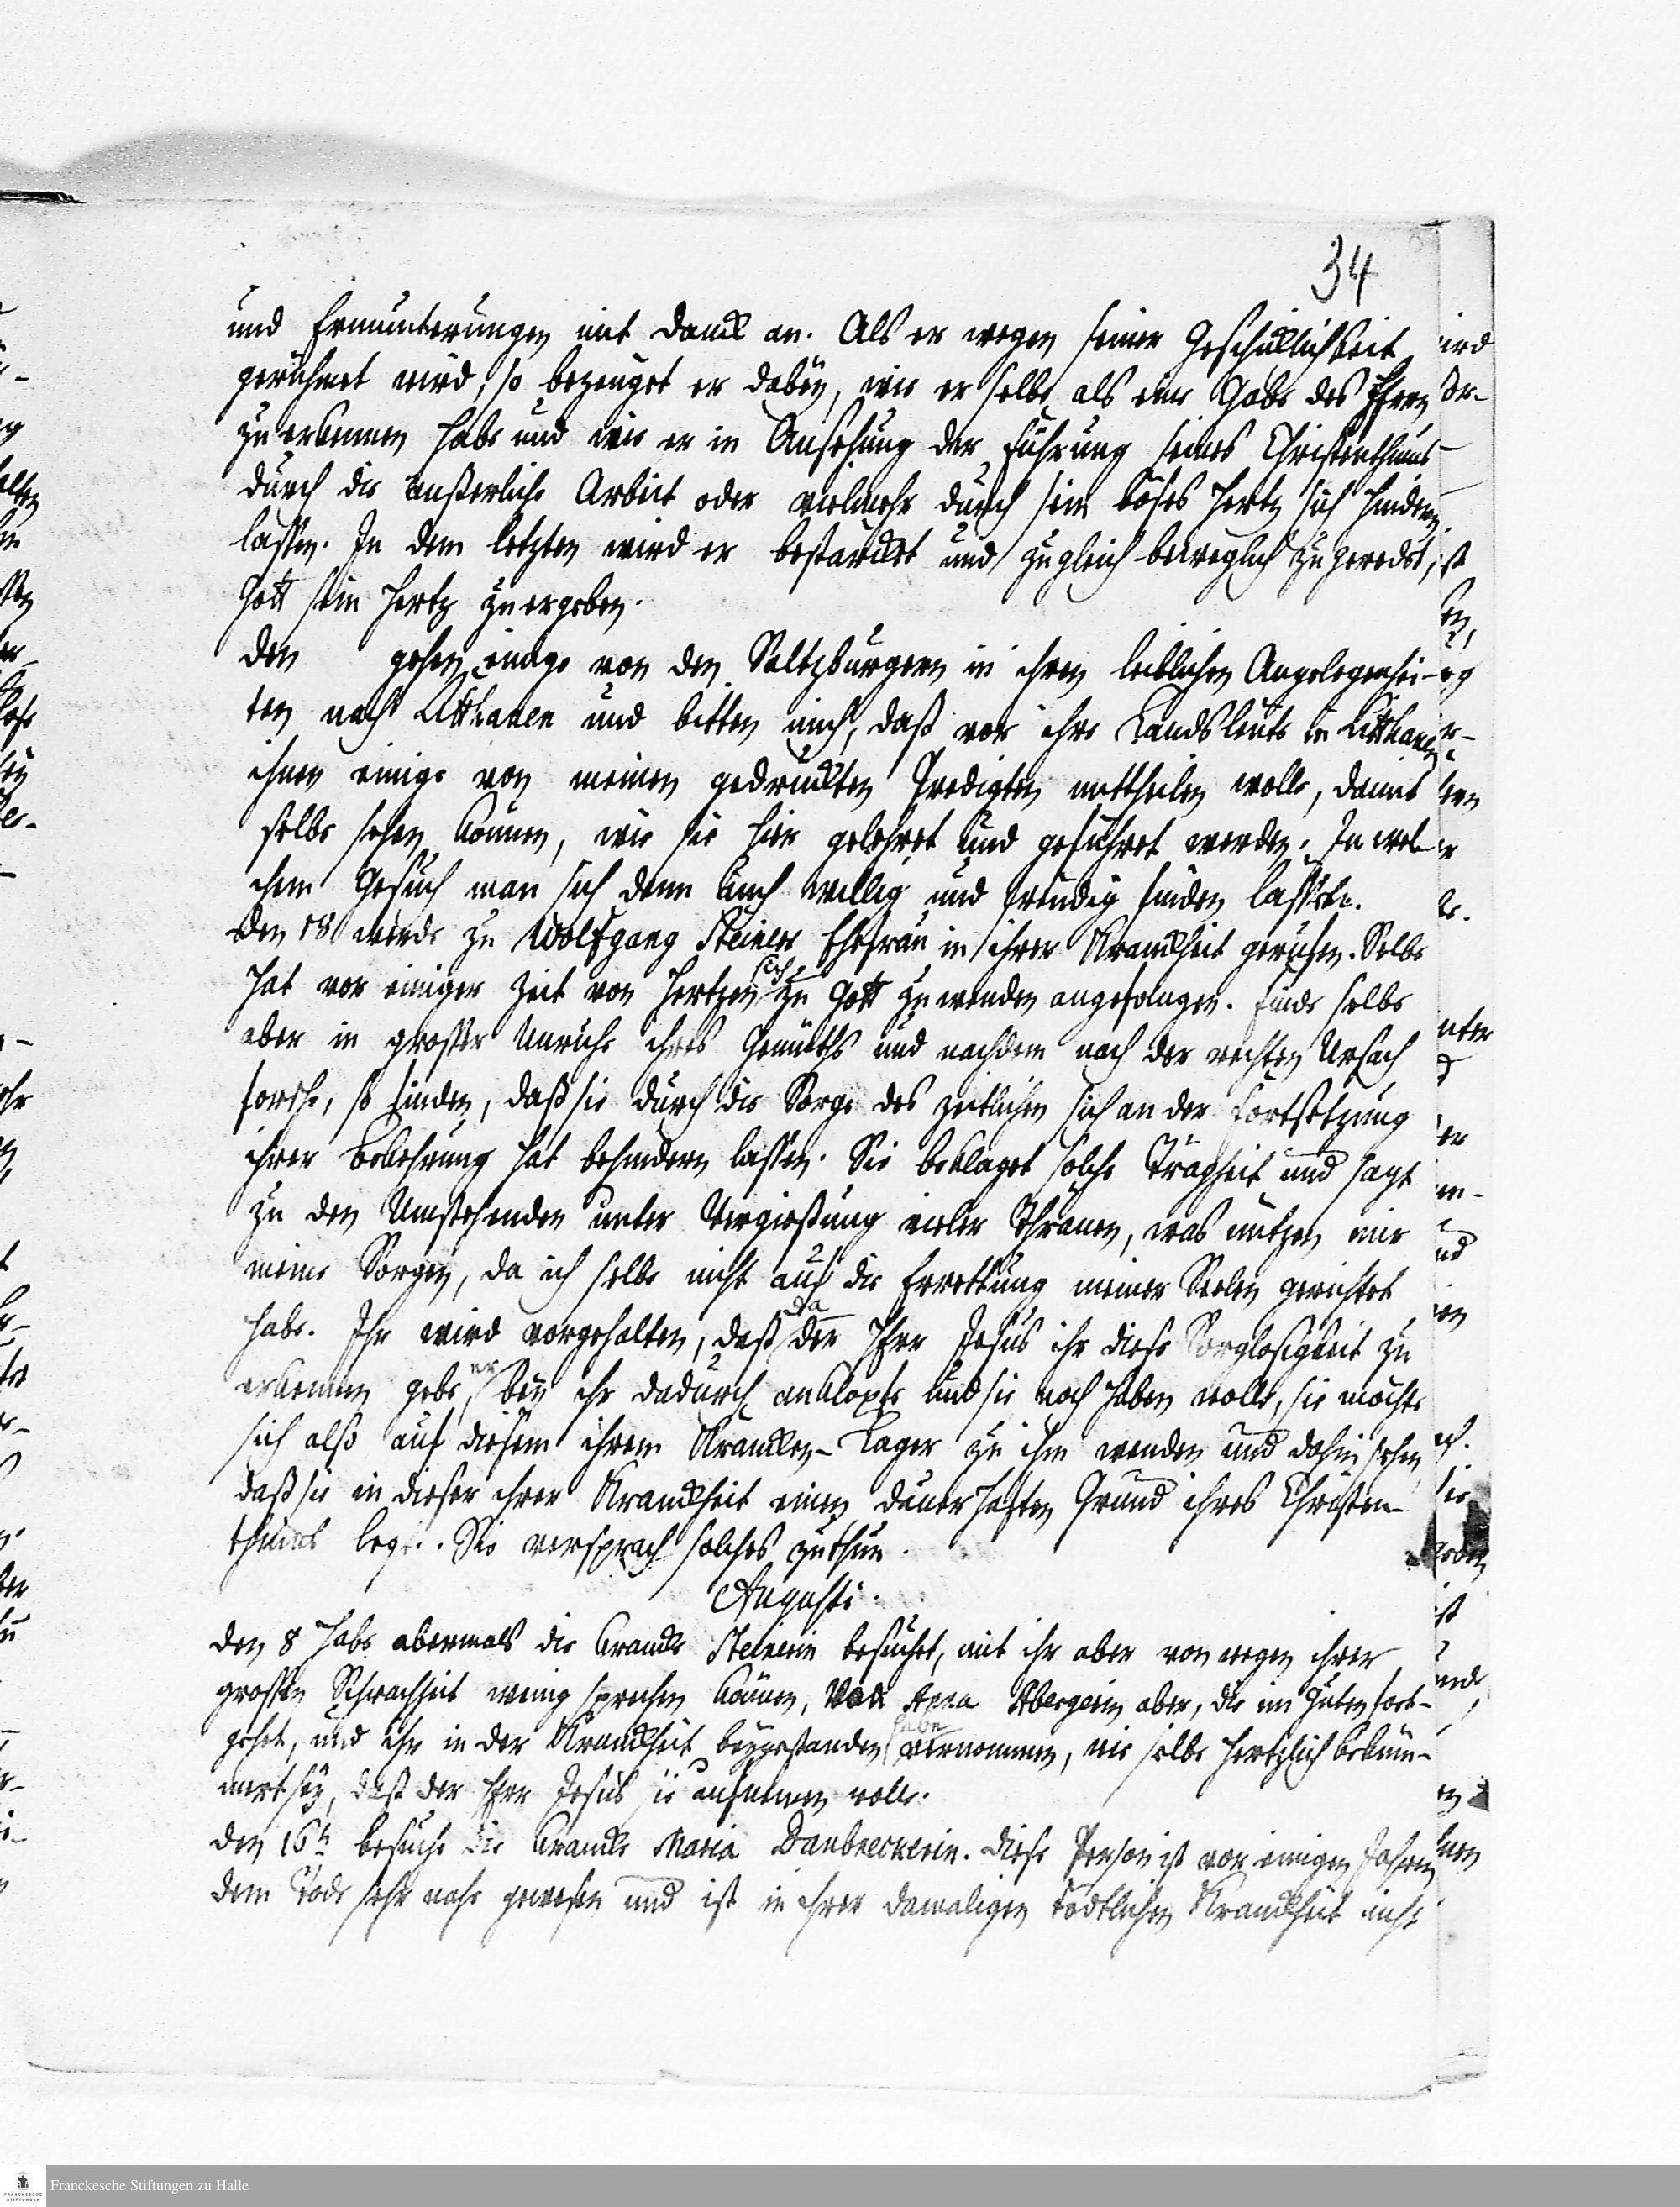 34
und Ermunterungen mit Danck an. Als er wegen seiner Geschicklichkeit
gerühmet wird, so bezeuget er dabey, wie er selbe als eine Gabe des Herrn
zu erkennen habe und wie er in Ansehung der Führung seines Christenthums
durch die äußerliche Arbeit oder vielmehr durch sein böses Hertz sich hindern
lassen. In dem letzten wird er bestärcket und zugleich beweglich zugeredet,
Gott sein Hertz zu ergeben.
Den gehen einige von den Saltzburgern in ihren leiblichen Angelegenhei-
ten nach Litthauen und bitten mich, daß vor ihre Landsleute in Litthauen
ihnen einige von meinen gedruckten Predigten mittheilen wolle, damit
selbe sehen können, wie sie hier gelehret und geführet werden. In wel-
chem Gesuch man sich denn auch willig und freudig finden lassete.
Den 18 werde zu Wolfgang Steiners Ehefrau in ihrer Kranckheit gerufen. Selbe
hat vor einiger Zeit von Hertzen sich zu Gott zu wenden angefangen. Finde selbe
aber in grosser Unruhe ihres Gemüths und nachdem nach der rechten Ursach
forsche, so finden, daß sie durch die Sorge des zeitlichen sich an der Fortsetzung
ihrer Bekehrung hat behindern lassen. Sie beklaget solche Trägheit und sagt
zu den Umstehenden unter Vergiessung vieler Thränen, was nutzen mir
meine Sorgen, da ich selbe nicht auf die Errettung meiner Seelen gerichtet
habe. Ihr wird vorgehalten, daß da der Herr Jesus ihr diese Sorglosigkeit zu
erkennen gebe, er bey ihr dadurch anklopfe und sie noch haben wolle, sie möchte
sich also auf diesem ihrem Krancken-Lager zu ihm wenden und dahin sehen
daß sie in dieser ihrer Kranckheit einen dauerhaften Grund ihres Christen-
thums lege. Sie versprach solches zu thun.
Augusti.
Den 8 habe abermals die krancke Steinerin besuchet, mit ihr aber von wegen ihrer
grossen Schwachheit wenig sprechen können, Von Anna Abergerin aber, die im Guten fort-
gehet, und ihr in der Kranckheit beygestanden habe vernommen, wie selbe hertzlich beküm-
mert sey, daß der Herr Jesus sie aufnemen wolle.
Den 16ten besuche die krancke Maria Daubreckerin. Diese Person ist vor einigen Jahren
dem Tode sehr nahe gewesen und ist in ihrer damaligen tödtlichen Kranckheit nicht
Franckesche Stiftungen zu Halle